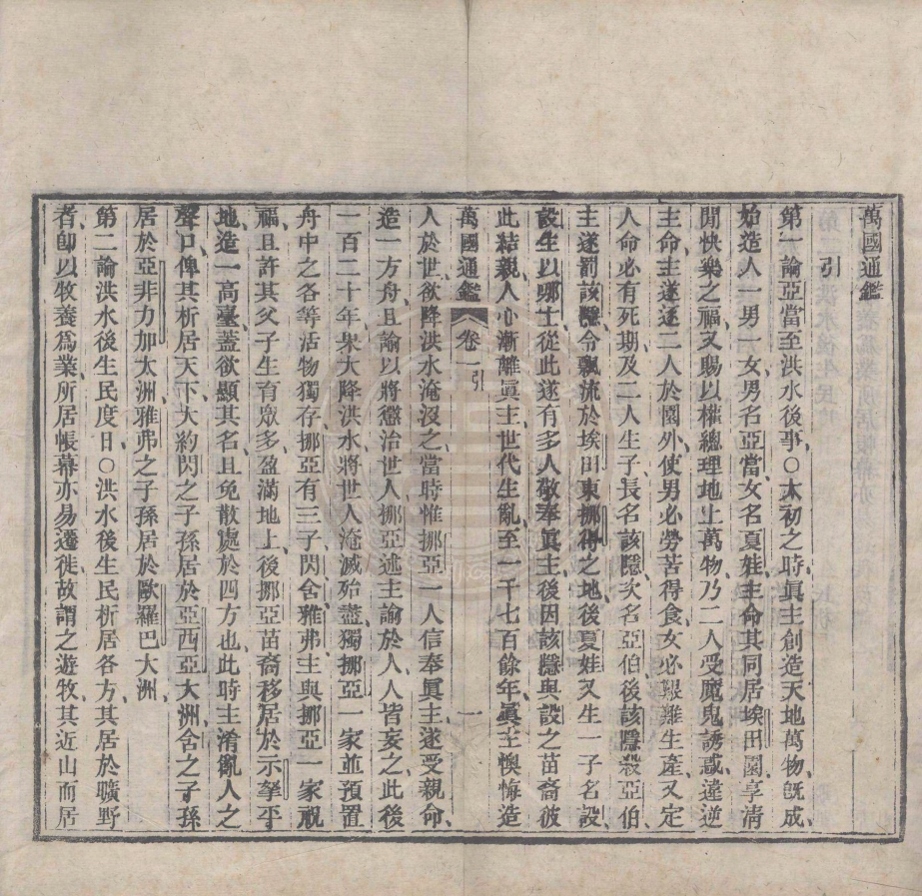 萬國通鑑
引
第一論亞當至洪水後事○太初之時眞主創造天地萬物旣成
始造人一男一女男名亞當女名夏娃主命其同居埃田園享清
閒快樂之福又賜以權總理地上萬物乃二人受魔鬼誘惑違逆
主命主遂逐二人於園外使男必勞苦得食女必艱難生產又定
人命必有死期及二人生子長名該隱次名亞伯後該隱殺亞伯
主遂罰該隱令飄流於埃田東挪得之地後夏娃又生一子名設
設生以哪士從此遂有多人敬奉眞主後因該隱與設之苗裔彼
此結親人心漸離眞主世代生亂至一千七百餘年眞主懊悔造
萬國通鑑 卷一引 一
人於世欲降洪水淹沒之當時惟挪亞一人信奉眞主遂受親命
造一方舟且諭以將懲治世人挪亞述主諭於人人皆妄之此後
一百二十年果大降洪水將世人淹滅殆盡獨挪亞一家並預置
舟中之各等活物獨存挪亞有三子閃含雅弗主與挪亞一家祝
福且許其父子生育眾多盈滿地上後挪亞苗裔移居於示拏平
地造一高臺蓋欲顯其名且免散處於四方也此時主淆亂人之
聲口俾其析居天下大約閃之子孫居於亞西亞大洲含之子孫
居於亞非力加大洲雅弗之子孫居於歐羅巴大洲
第二論洪水後生民度日○洪水後生民析居各方其居於曠野
者卽以牧養爲業所居帳幕亦易遷徙故謂之遊牧其近山而居